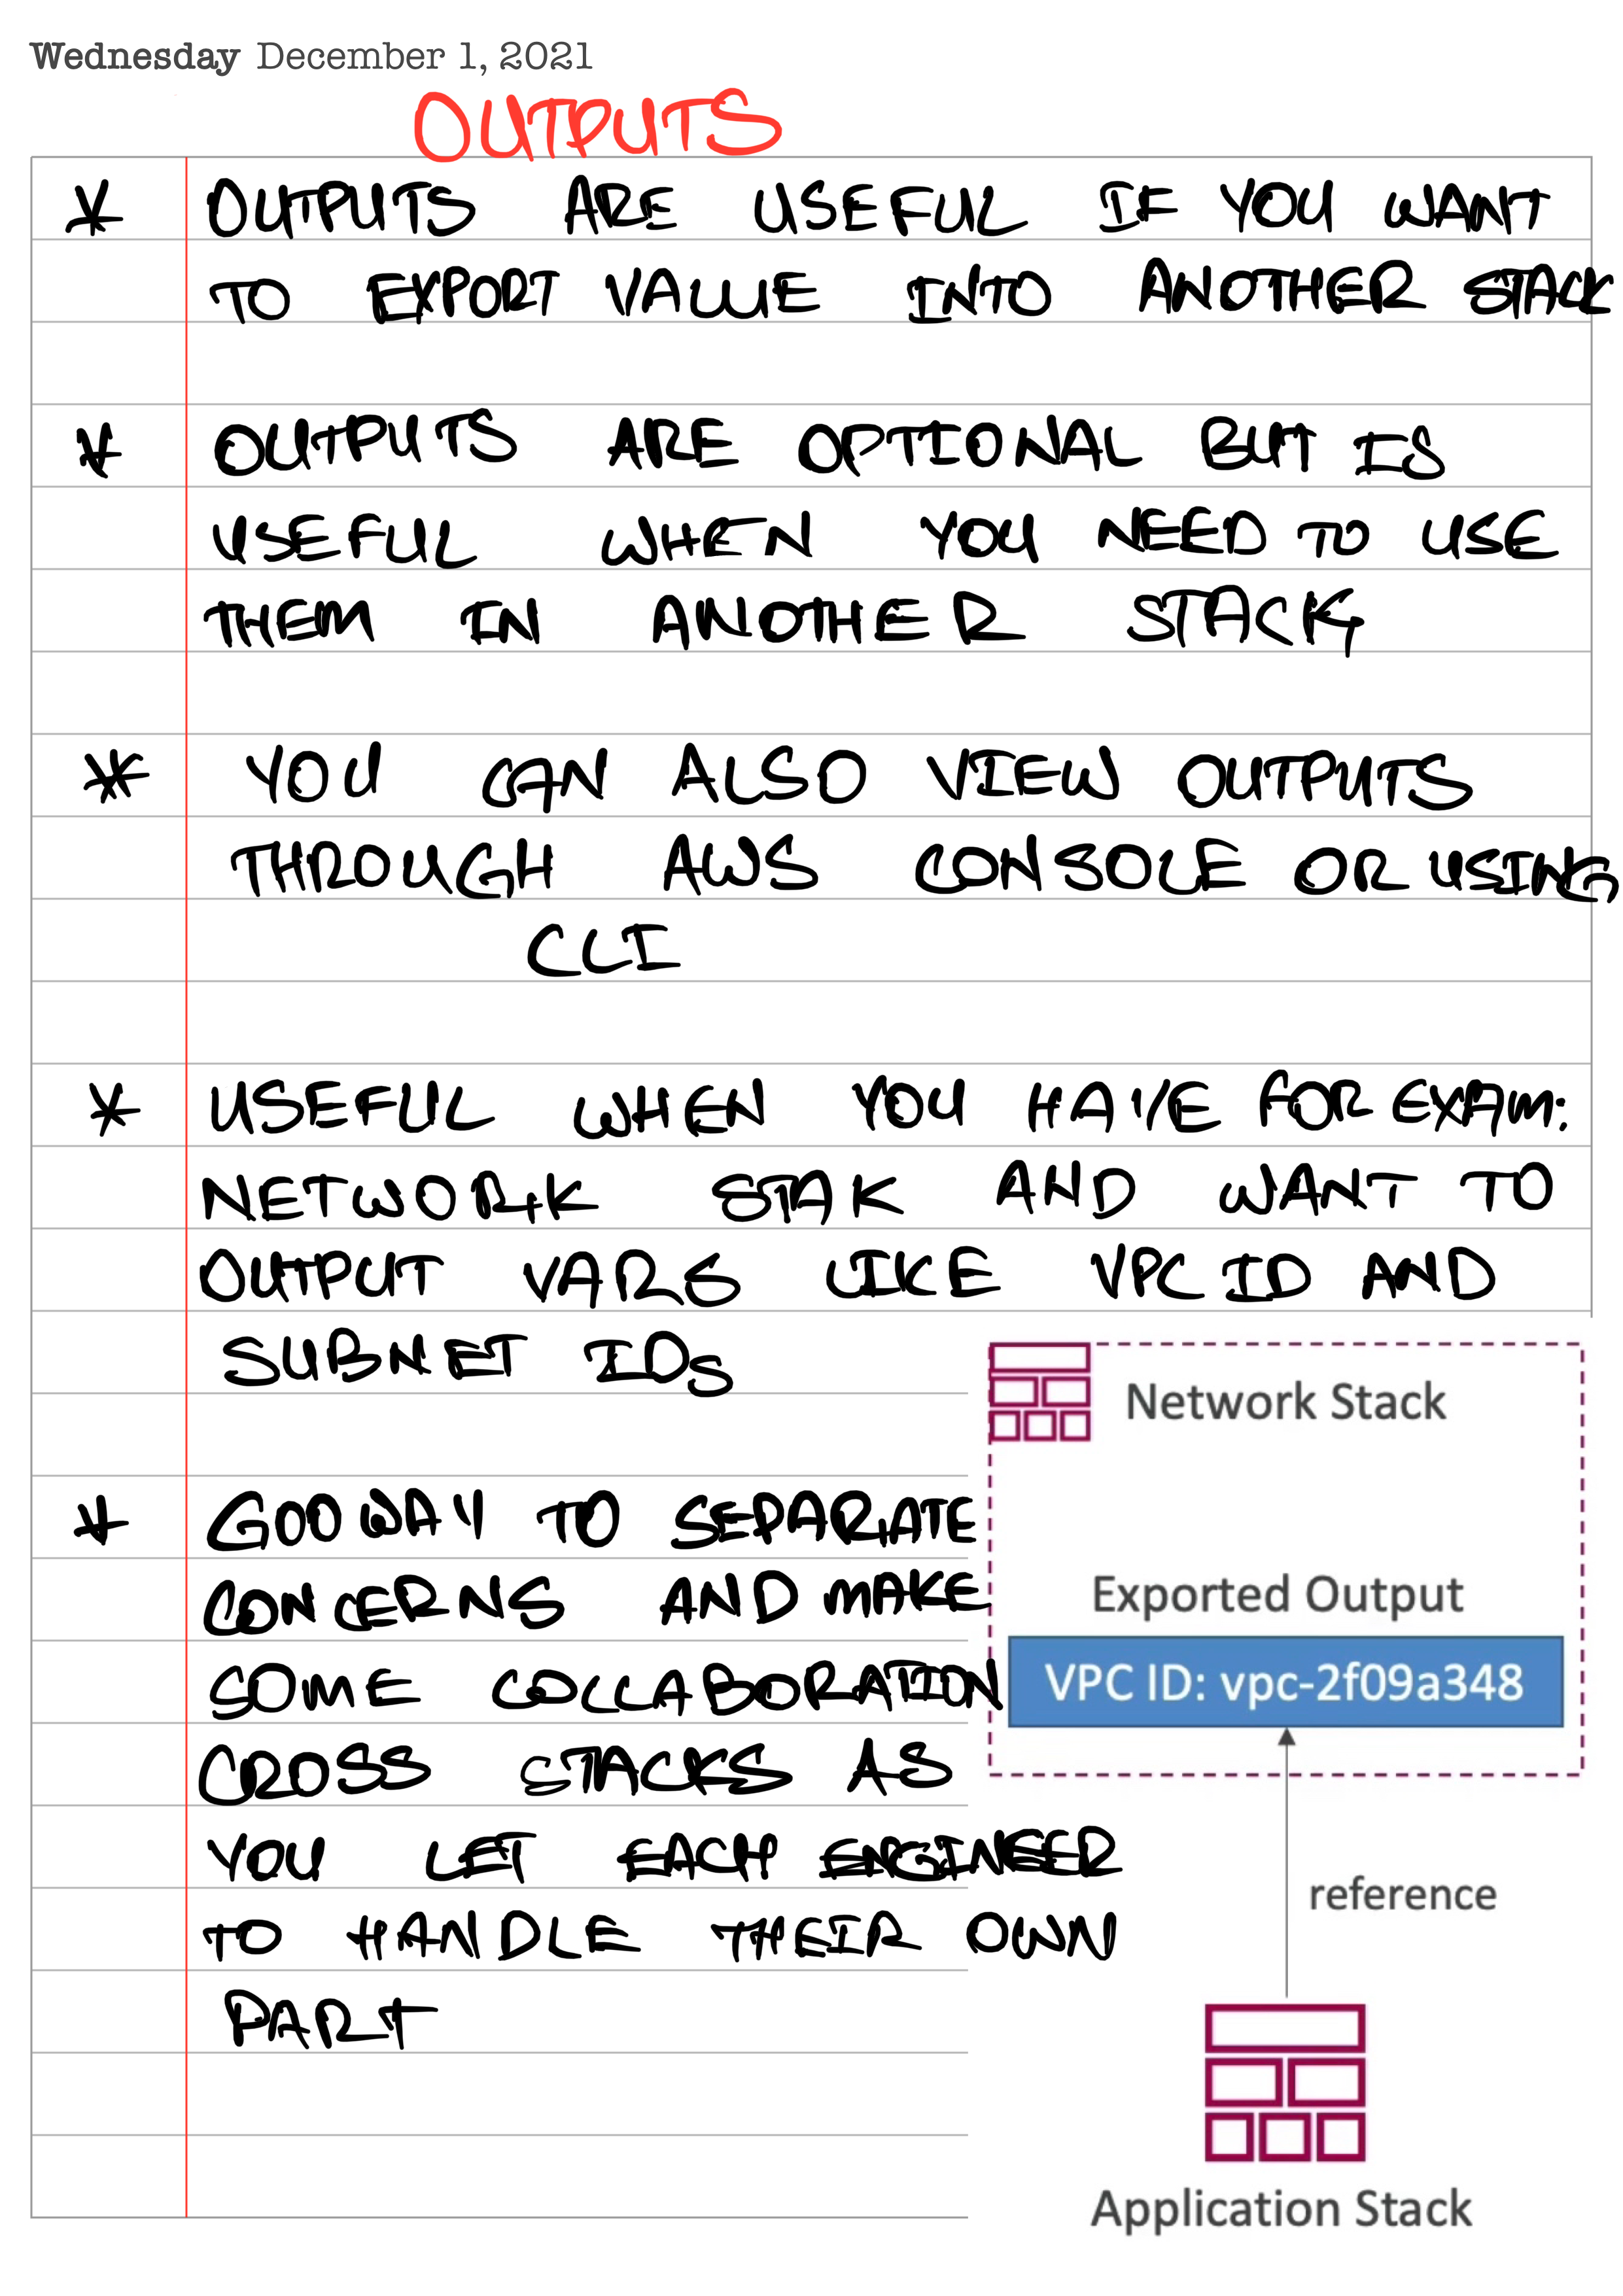 Wednesday December 1, 2021
OUTPUTS
* OUTPUTS ARE USEFUL IF YOU WANT
TO EXPORT VALUE INTO ANOTHER STACK
* OUTPUTS ARE OPTIONAL BUT IS
USEFUL WHEN YOU NEED TO USE
THEM IN ANOTHER STACK
* YOU CAN ALSO VIEW OUTPUTS
THROUGH AWS CONSOLE OR USING
CLI
* USEFUL WHEN YOU HAVE FOR EXAM:
NETWORK STAK AND WANT TO
OUTPUT VARS LIKE VPC ID AND
SUBNET IDs
* GOOD WAY TO SEPARATE
CONCERNS AND MAKE
SOME COLLABORATION
CROSS STACKS AS
YOU LET EACH ENGINEER
TO HANDLE THEIR OWN
PART
Network Stack
Exported Output
VPC ID: vpc-2f09a348
reference
Application Stack